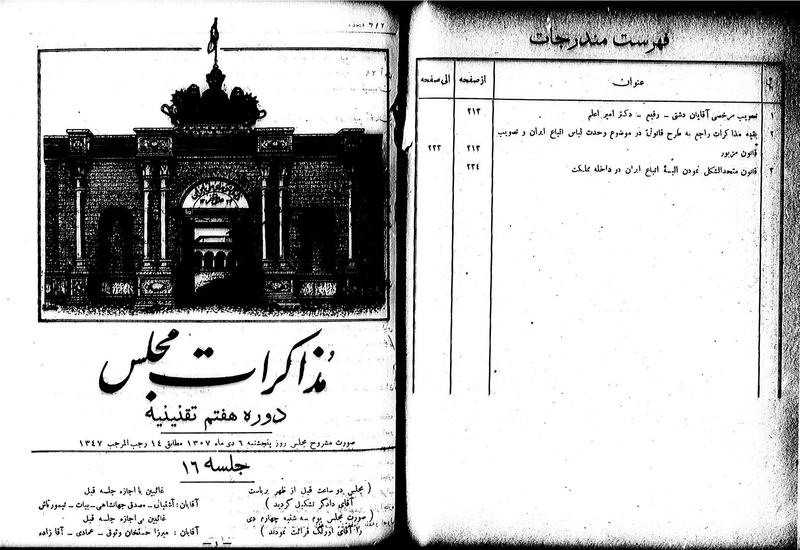 فهرست مندرجات
عنوان
از صفحه
الی صفحه
۱ تصویب مرخصی آقایان دشتی ـ رفیع ـ دکتر امیر اعلم ۲۱۳
۲ بقیه مذاکرات راجع به طرح قانونی در موضوع وحدت لباس اتباع ایران و تصویب
قانون مزبور ۲۱۳ ۲۳۳
۳ قانون متحدالشکل نمودن البسهٔ اتباع ایران در داخله مملکت ۲۳۴
مذاکرات مجلس
دوره هفتم تقنینیه
صورت مشروح مجلس روز پنجشنبه ۶ دی ماه ۱۳۰۷ مطابق ۱۴ رجب المرجب ۱۳۴۷
جلسه ۱۶
( مجلس دو ساعت قبل از ظهر بریاست
آقای دادگر تشکیل گردید )
( صورت مجلس یوم سه شنبه چهارم دی
را آقای اورنگ قرائت نمودند )
غائبین با اجازه جلسه قبل
آقایان : آشتیانی ـ مصدق جهانشاهی ـ بیات ـ تیمورتاش
غائبین بی اجازه جلسه قبل
آقایان : میرزا حسنخان وثوق ـ عمادی ـ آقا زاده
ـ ۱ ـ